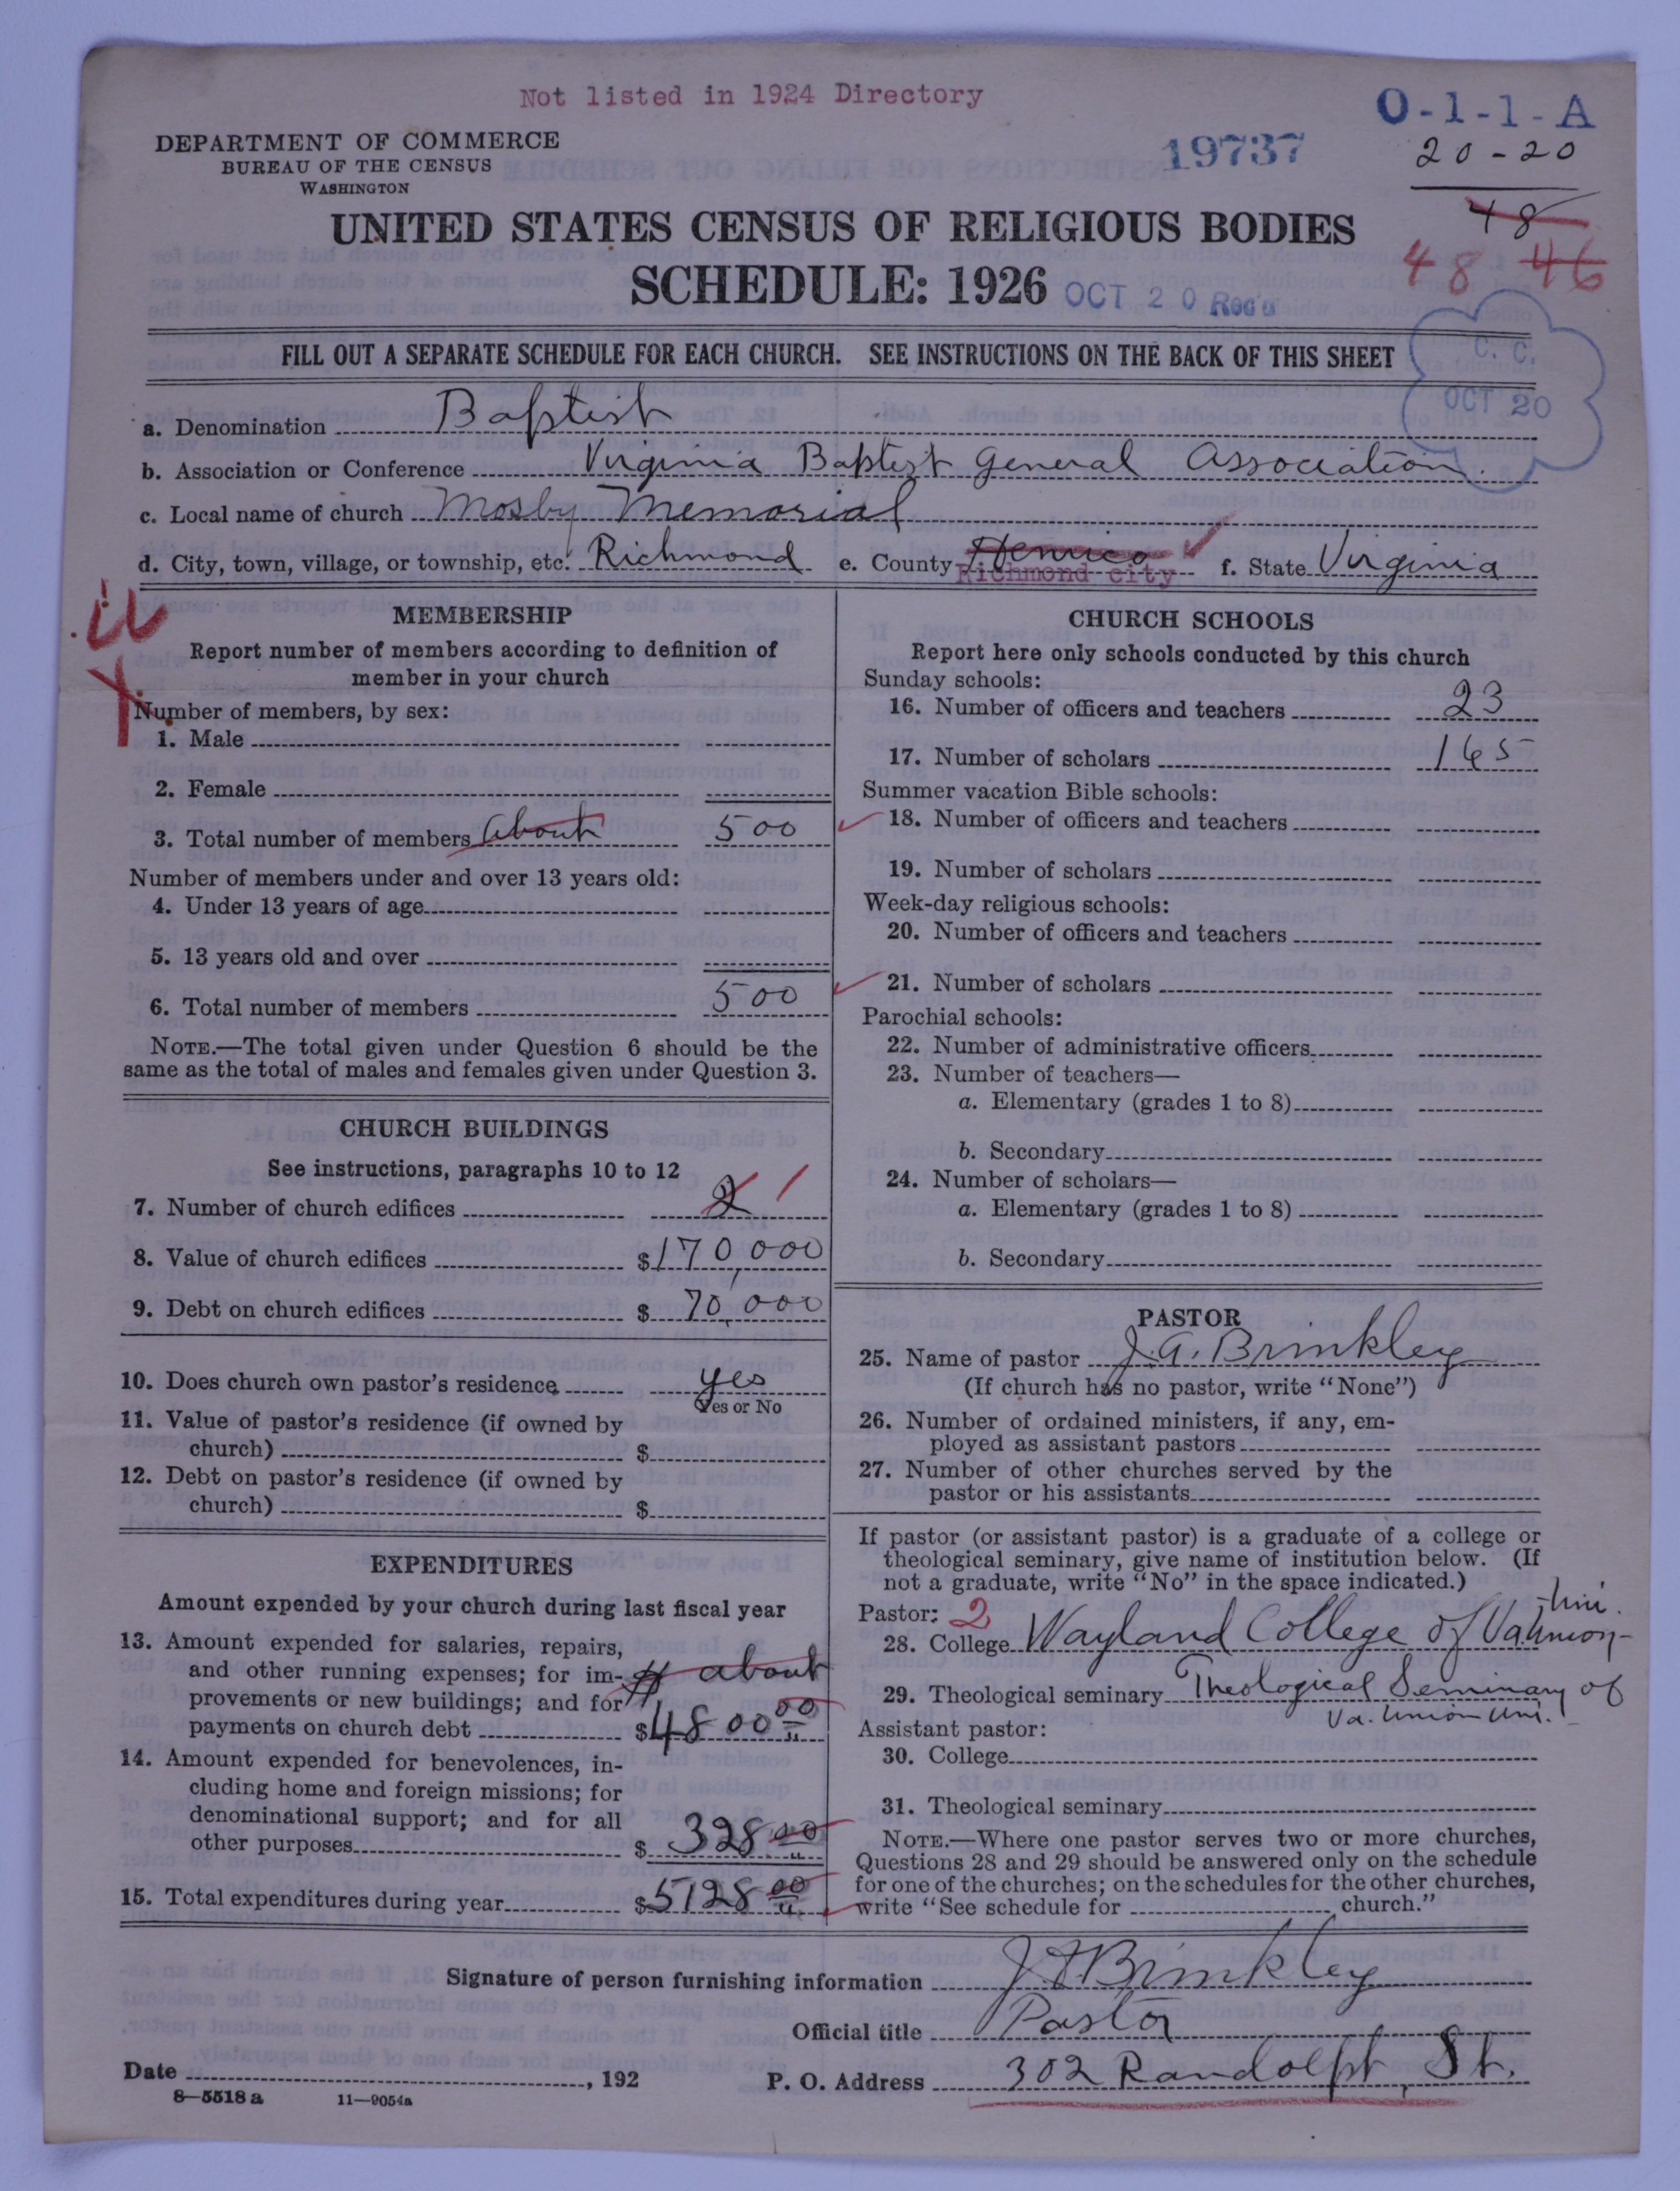 Not listed in 1924 Directory
O-1-1-A
DEPARTMENT OF COMMERCE
BUREAU OF THE CENSUS
WASHINGTON
19737
20-20
48
48 46
UNITED STATES CENSUS OF RELIGIOUS BODIES
SCHEDULE: 1926
OCT 20 Rec'd
FILL OUT A SEPARATE SCHEDULE FOR EACH CHURCH. SEE INSTRUCTIONS ON THE BACK OF THIS SHEET
C. C.
OCT 20
a. Denomination Baptist
b. Association or Conference Virginia Baptist General Association.
c. Local name of church Mosby Memorial
d. City, town, village, or township, etc. Richmond e. County Henrico Richmond city f. State Virginia
MEMBERSHIP
Report number of members according to definition of
member in your church
Number of members, by sex:
1. Male
2. Female
3. Total number of members About 500
Number of members under and over 13 years old:
4. Under 13 years of age
5. 13 years old and over
6. Total number of members 500
NOTE.—The total given under Question 6 should be the
same as the total of males and females given under Question 3.
CHURCH BUILDINGS
See instructions, paragraphs 10 to 12
7. Number of church edifices 2 1
8. Value of church edifices $170,000
9. Debt on church edifices $ 70,000
10. Does church own pastor's residence yes
Yes or No
11. Value of pastor's residence (if owned by
church) $
12. Debt on pastor's residence (if owned by
church) $
EXPENDITURES
Amount expended by your church during last fiscal year
13. Amount expended for salaries, repairs,
and other running expenses; for im- about
provements or new buildings; and for
payments on church debt $4800 00
14. Amount expended for benevolences, in-
cluding home and foreign missions; for
denominational support; and for all
other purposes $ 328 00
15. Total expenditures during year $5128 00
CHURCH SCHOOLS
Report here only schools conducted by this church
Sunday schools:
16. Number of officers and teachers 23
17. Number of scholars 165
Summer vacation Bible schools:
18. Number of officers and teachers
19. Number of scholars
Week-day religious schools:
20. Number of officers and teachers
21. Number of scholars
Parochial schools:
22. Number of administrative officers
23. Number of teachers—
a. Elementary (grades 1 to 8)
b. Secondary
24. Number of scholars—
a. Elementary (grades 1 to 8)
b. Secondary
PASTOR
25. Name of pastor J. A. Brinkley
(If church has no pastor, write "None")
26. Number of ordained ministers, if any, em-
ployed as assistant pastors
27. Number of other churches served by the
pastor or his assistants
If pastor (or assistant pastor) is a graduate of a college or
theological seminary, give name of institution below. (If
not a graduate, write "No" in the space indicated.)
Pastor: 2
28. College Wayland College of Va. Union Uni.
29. Theological seminary Theological Seminary of
Va. Union Uni.
Assistant pastor:
30. College
31. Theological seminary
NOTE.—Where one pastor serves two or more churches,
Questions 28 and 29 should be answered only on the schedule
for one of the churches; on the schedules for the other churches,
write "See schedule for church."
Signature of person furnishing information J. A. Brinkley
Official title Pastor
Date , 192
P. O. Address 302 Randolph, St.
8—5518 a 11—9054a